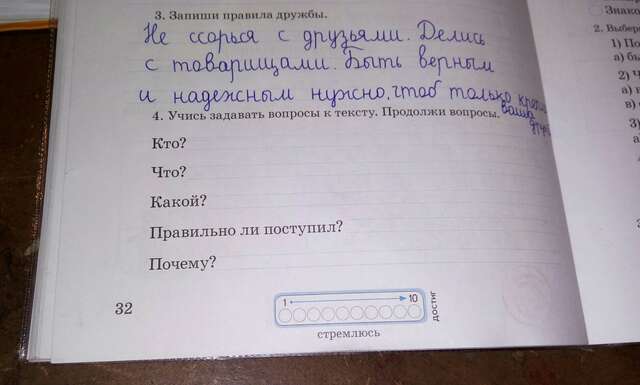 3. Запиши правила дружбы.
Не ссорься с друзьями. Делись
с товарищами. Быть верным
и надежным нужно, чтоб только
ваша
4. Учись задавать вопросы к тексту. Продолжи вопросы.
Кто?
Что?
Какой?
Правильно ли поступил?
Почему?
32
1 10
достиг
стремлюсь
Знако
2. Выбер
1) По
а) бы
2) Ч
а) в
в)
3)
а